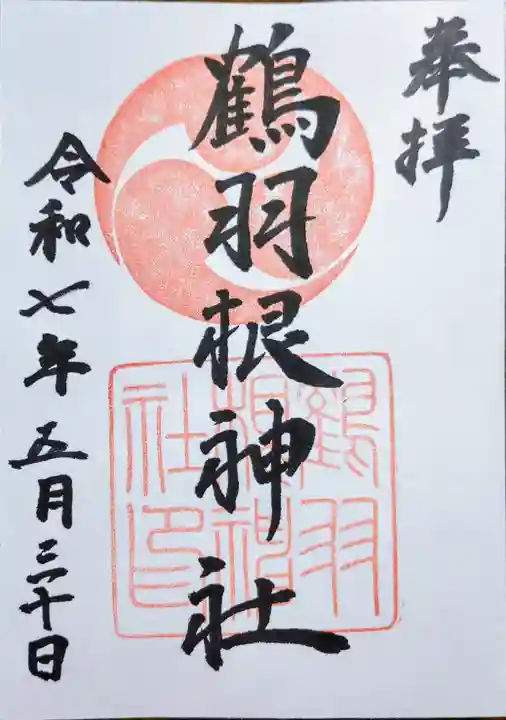 奉拝
鶴羽根神社
鶴羽
根神
社印
令和七年五月三十日